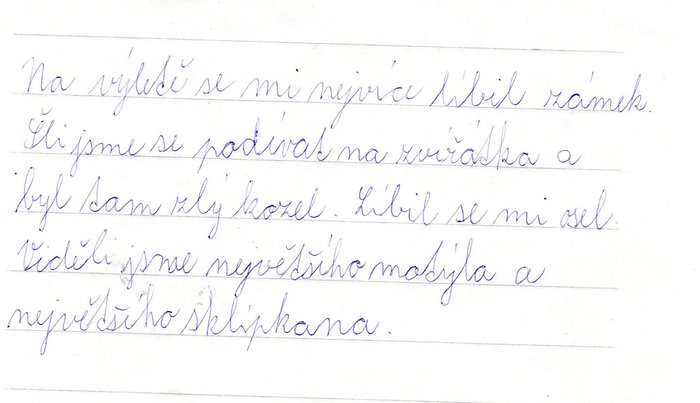 Na výletě se mi nejvíce líbil zámek.
Šli jsme se podívat na zvířátka a
byl tam zlý kozel. Líbil se mi osel.
Viděli jsme největšího motýla a
největšího sklípkana.